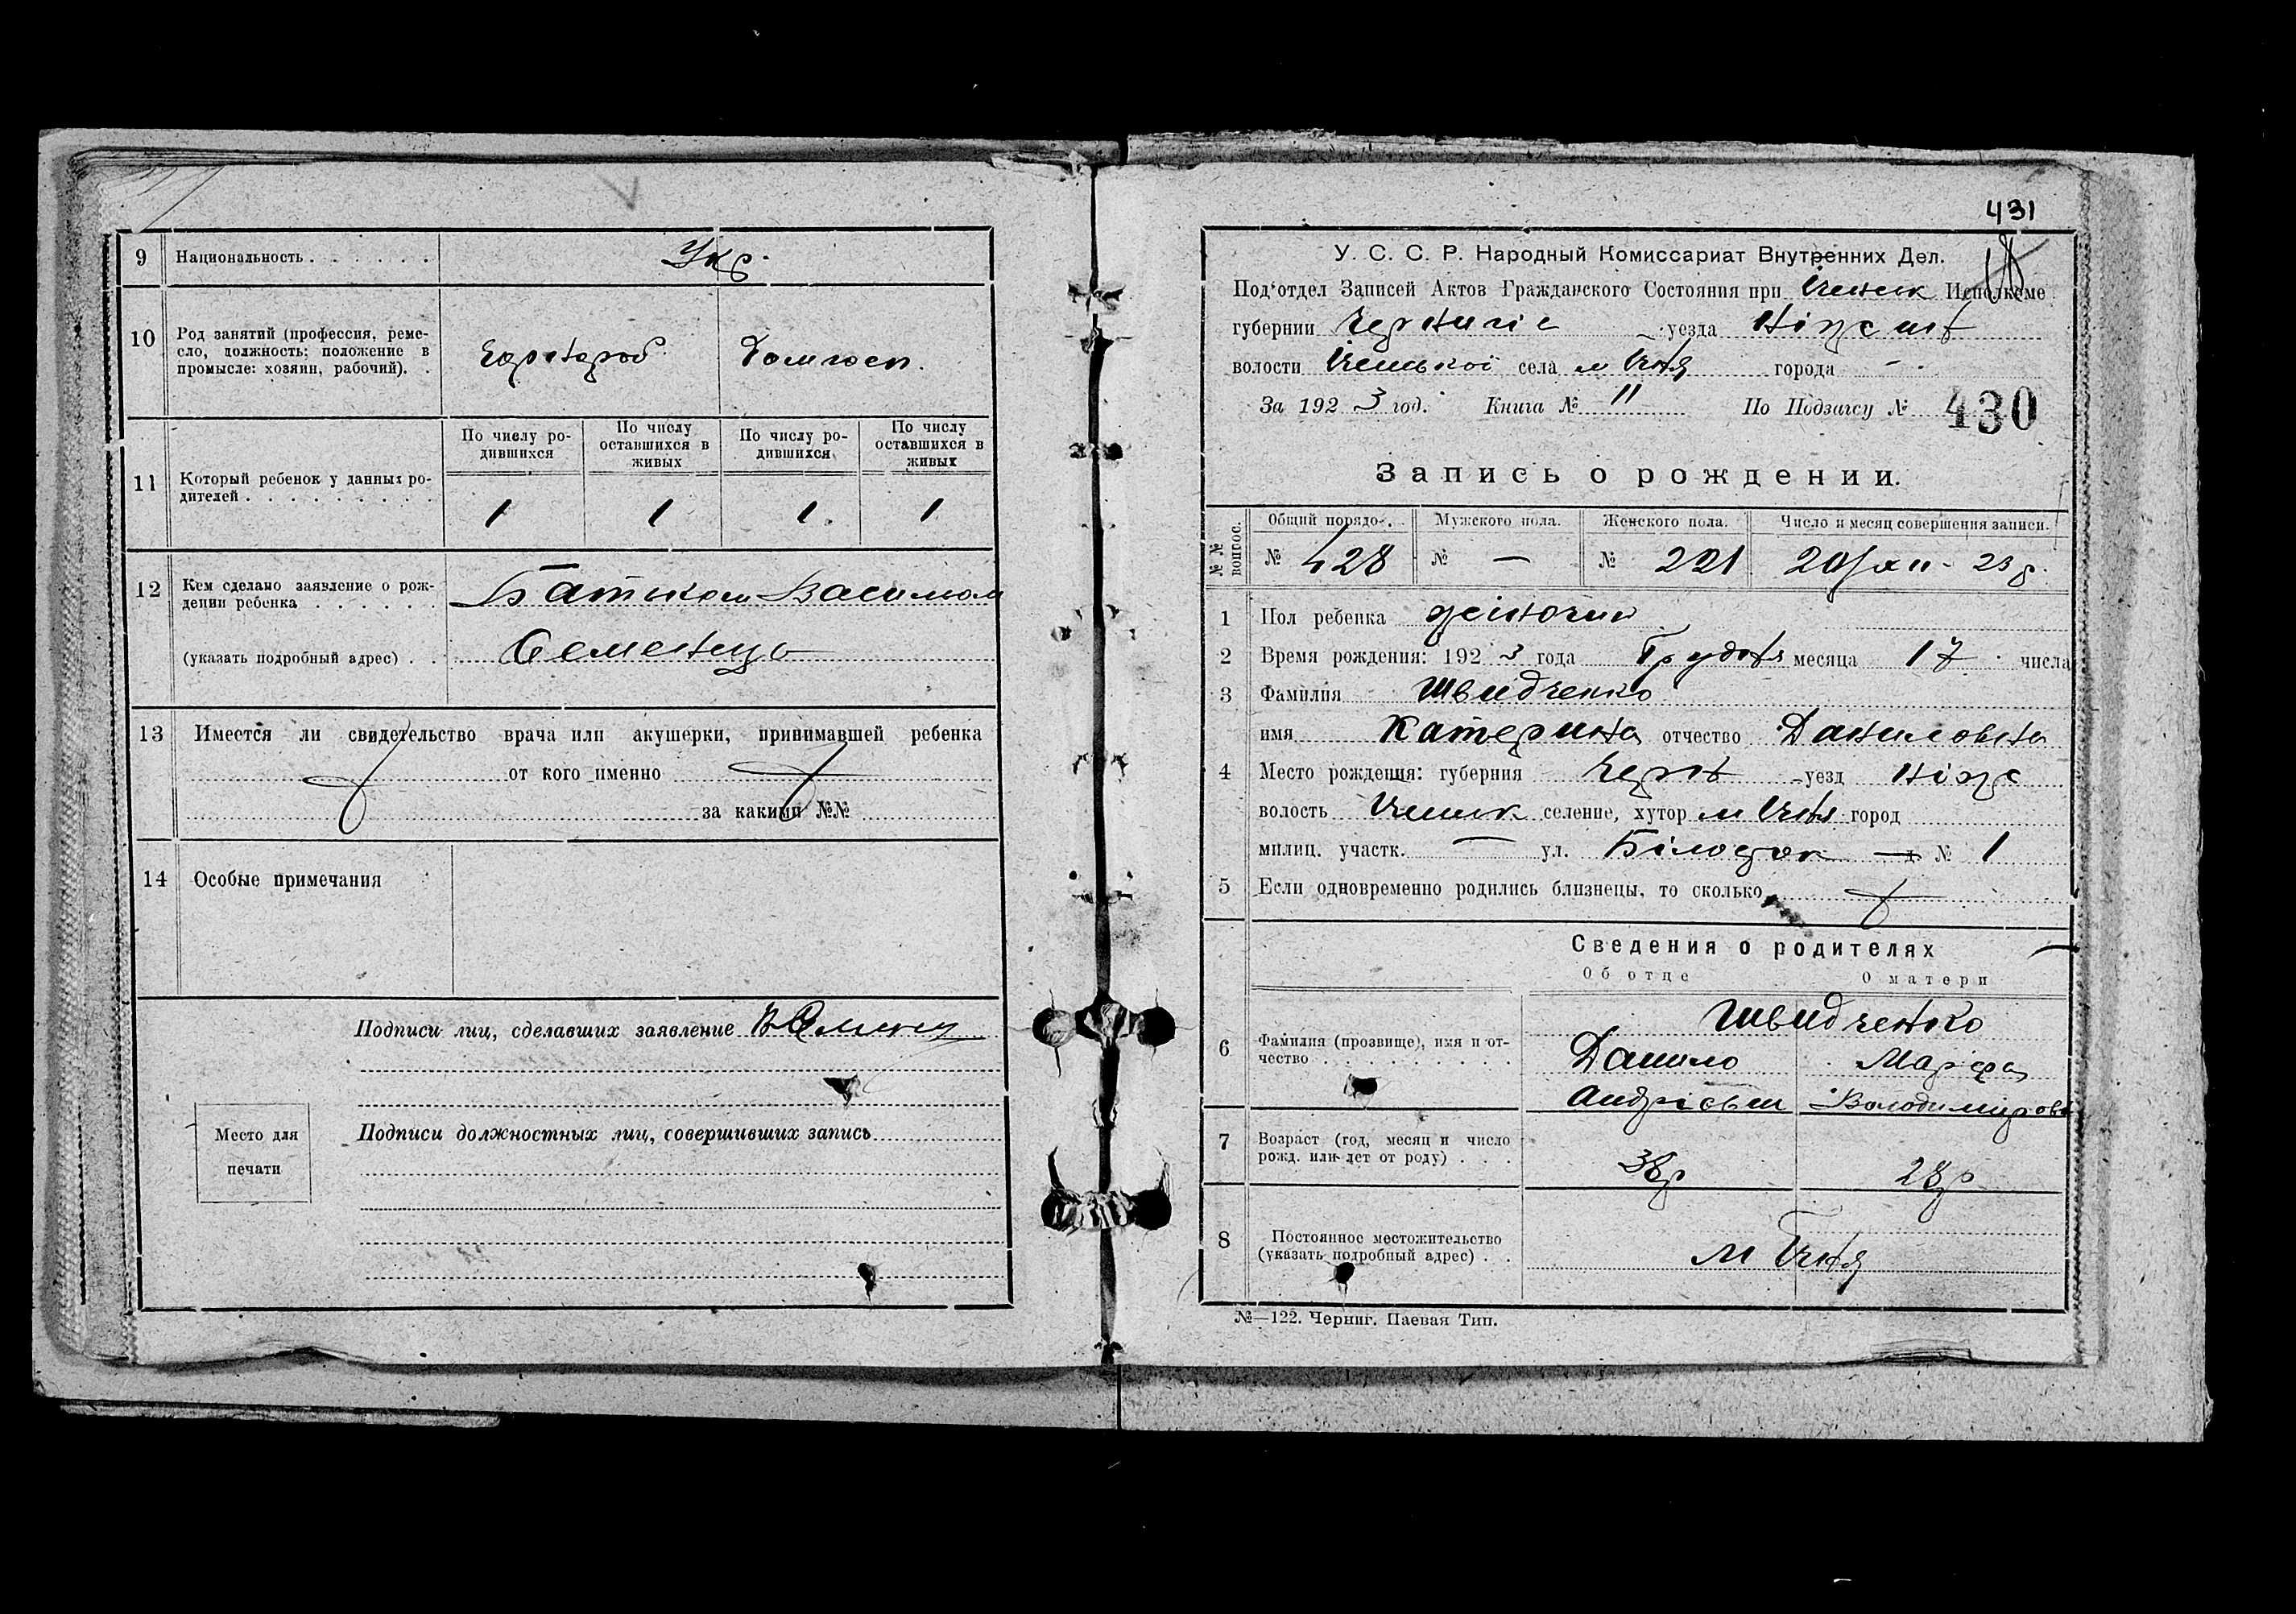 9 Национальность . . . . . . Укр.
10 Род занятий (профессия, реме-
сло, должность; положение в
промысле: хозяин, рабочий). .
Домгосп.
По числу ро-
дившихся
По числу
оставшихся в
живых
По числу ро-
дившихся
По числу
оставшихся в
живых
11 Который ребенок у данных ро-
дителей . . . . . . . . .
1 1 1 1
12 Кем сделано заявление о рож-
дении ребенка . . . . . . Батьком Васильом
(указать подробный адрес) . . Семенець
13 Имеется ли свидетельство врача или акушерки, принимавшей ребенка
от кого именно
за какими №№
14 Особые примечания
Подписи лиц, сделавших заявление
Место для
печати
Подписи должностных лиц, совершивших запись
431
У. С. С. Р. Народный Комиссариат Внутренних Дел.
Под'отдел Записей Актов Гражданского Состояния при Ічньск Исполкоме
губернии уезда Ніженс
волости Іченської села м Ічня города -
За 1923 год. Книга № 11 По Подзагсу № 430
Запись о рождении.
№№ вопрос.
Общий порядо-. Мужского пола. Женского пола. Число и месяц совершения записи.
№ 428 № — № 221 20/XII - 23 р.
1 Пол ребенка жіночий
2 Время рождения: 1923 года Грудня месяца 17 числа
3 Фамилия Швидченко
имя Катерина отчество Даниловна
4 Место рождения: губерния Черн уезд Ніже
волость Іченьк селение, хутор м Ічня город
милиц. участк. — ул. № 1
5 Если одновременно родились близнецы, то сколько
Сведения о родителях
Об отце О матери
Швидченко
6 Фамилия (прозвище), имя и от-
чество . . . . . . . . .
Данило Марфа
Андрієвич Володимировн
7 Возраст (год, месяц и число
рожд. или лет от роду) . . .
38 р 28 р
8 Постоянное местожительство
(указать подробный адрес) . .
м Ічня
№—122. Черниг. Паевая Тип.